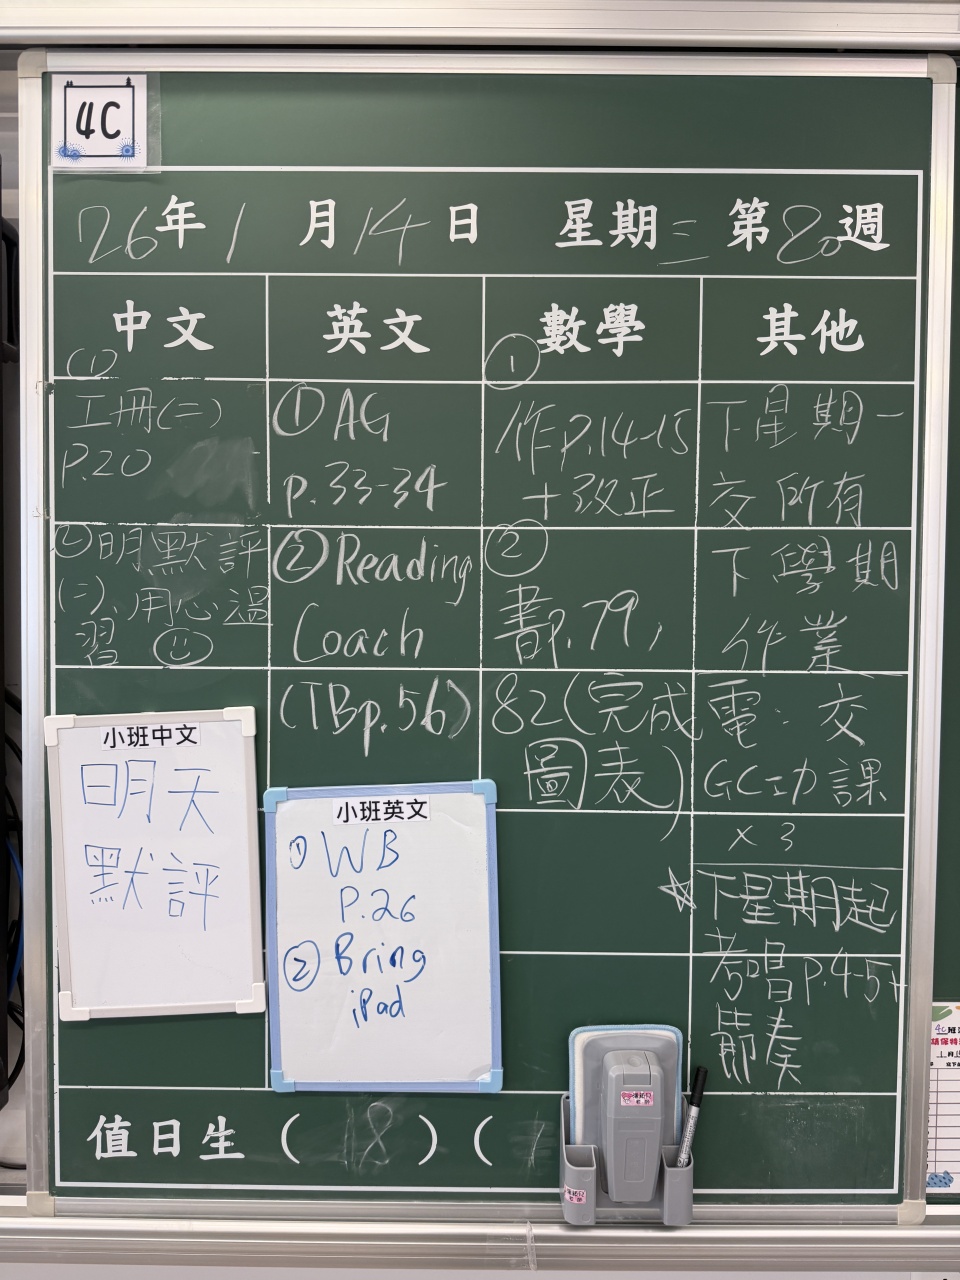 4C
26年1月14日 星期三 第20週
中文
(1)
工冊(二)
P.20
② 明默評
(二)、用心溫
習
小班中文
明天
默評
英文
① AG
p.33-34
② Reading
Coach
(TB p.56)
小班英文
① WB
P.26
② Bring
iPad
數學
①
作p.14-15
+改正
②
書p.79,
82(完成
圖表)
其他
下星期一
交所有
下學期
作業
電：交
GC功課
x 3
☆下星期起
考唱p.4-5+
節奏
值日生 ( 18 ) ( 1